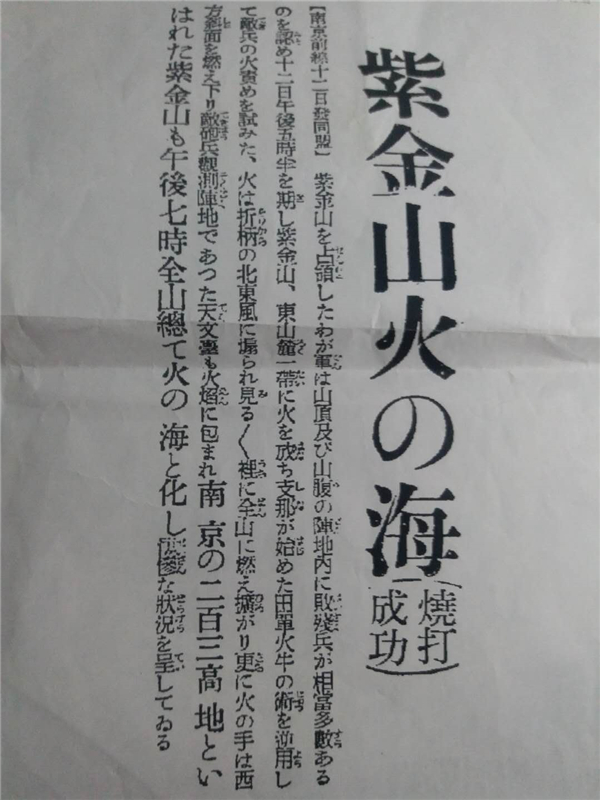 紫金山火の海
(燒打成功)
【南京前線十二日發同盟】 紫金山を占領したわが軍は山頂及び山腹の陣地内に敗殘兵が相當多數ある
のを認め十二日午後五時半を期し紫金山、東山麓一帶に火を放ち支那が始めた田單火牛の術を逆用し
て敵兵の火責めを試みた、火は折柄の北東風に煽られ見る〱裡に全山に燃え擴がり更に火の手は西
方斜面を燃え下り敵砲兵觀測陣地であつた天文臺も火焰に包まれ南京の二百三高地とい
はれた紫金山も午後七時全山總て火の海と化し悽慘な狀況を呈してゐる